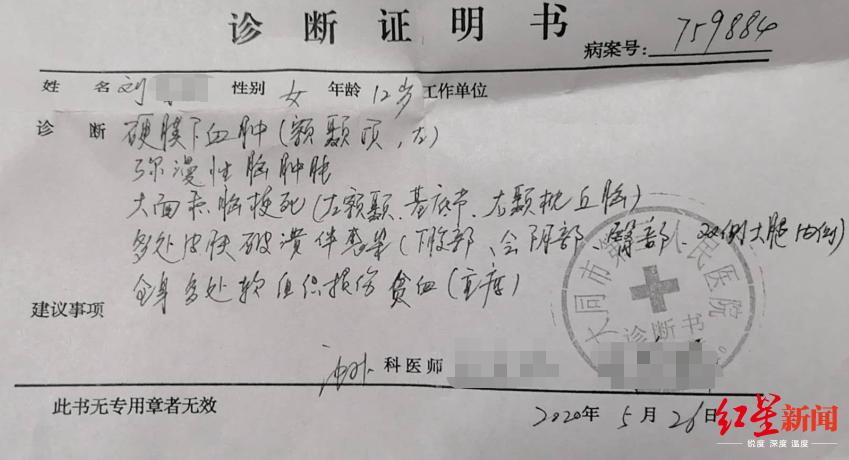 诊断证明书
病案号: 759884
姓 名 刘 性别 女 年龄 12岁 工作单位
诊 断 硬膜下血肿(额颞顶,左)
弥漫性脑肿胀
大面积脑梗死(左额颞、基底节、右颞枕丘脑)
多处皮肤破溃伴感染(下腹部、会阴部、臀部、双侧大腿内侧)
全身多处软组织损伤 贫血(重度)
建议事项
大同市 人民医院
诊断书
科医师
此书无专用章者无效
2020年 5月 26日
红星新闻
锐度 深度 温度